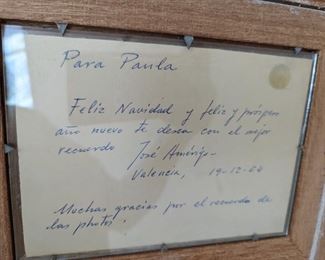 Para Paula
Feliz Navidad y feliz y próspero
año nuevo te desea con el mejor
recuerdo José Amérigo
Valencia, 19-12-84
Muchas gracias por el recuerdo de
las photos.